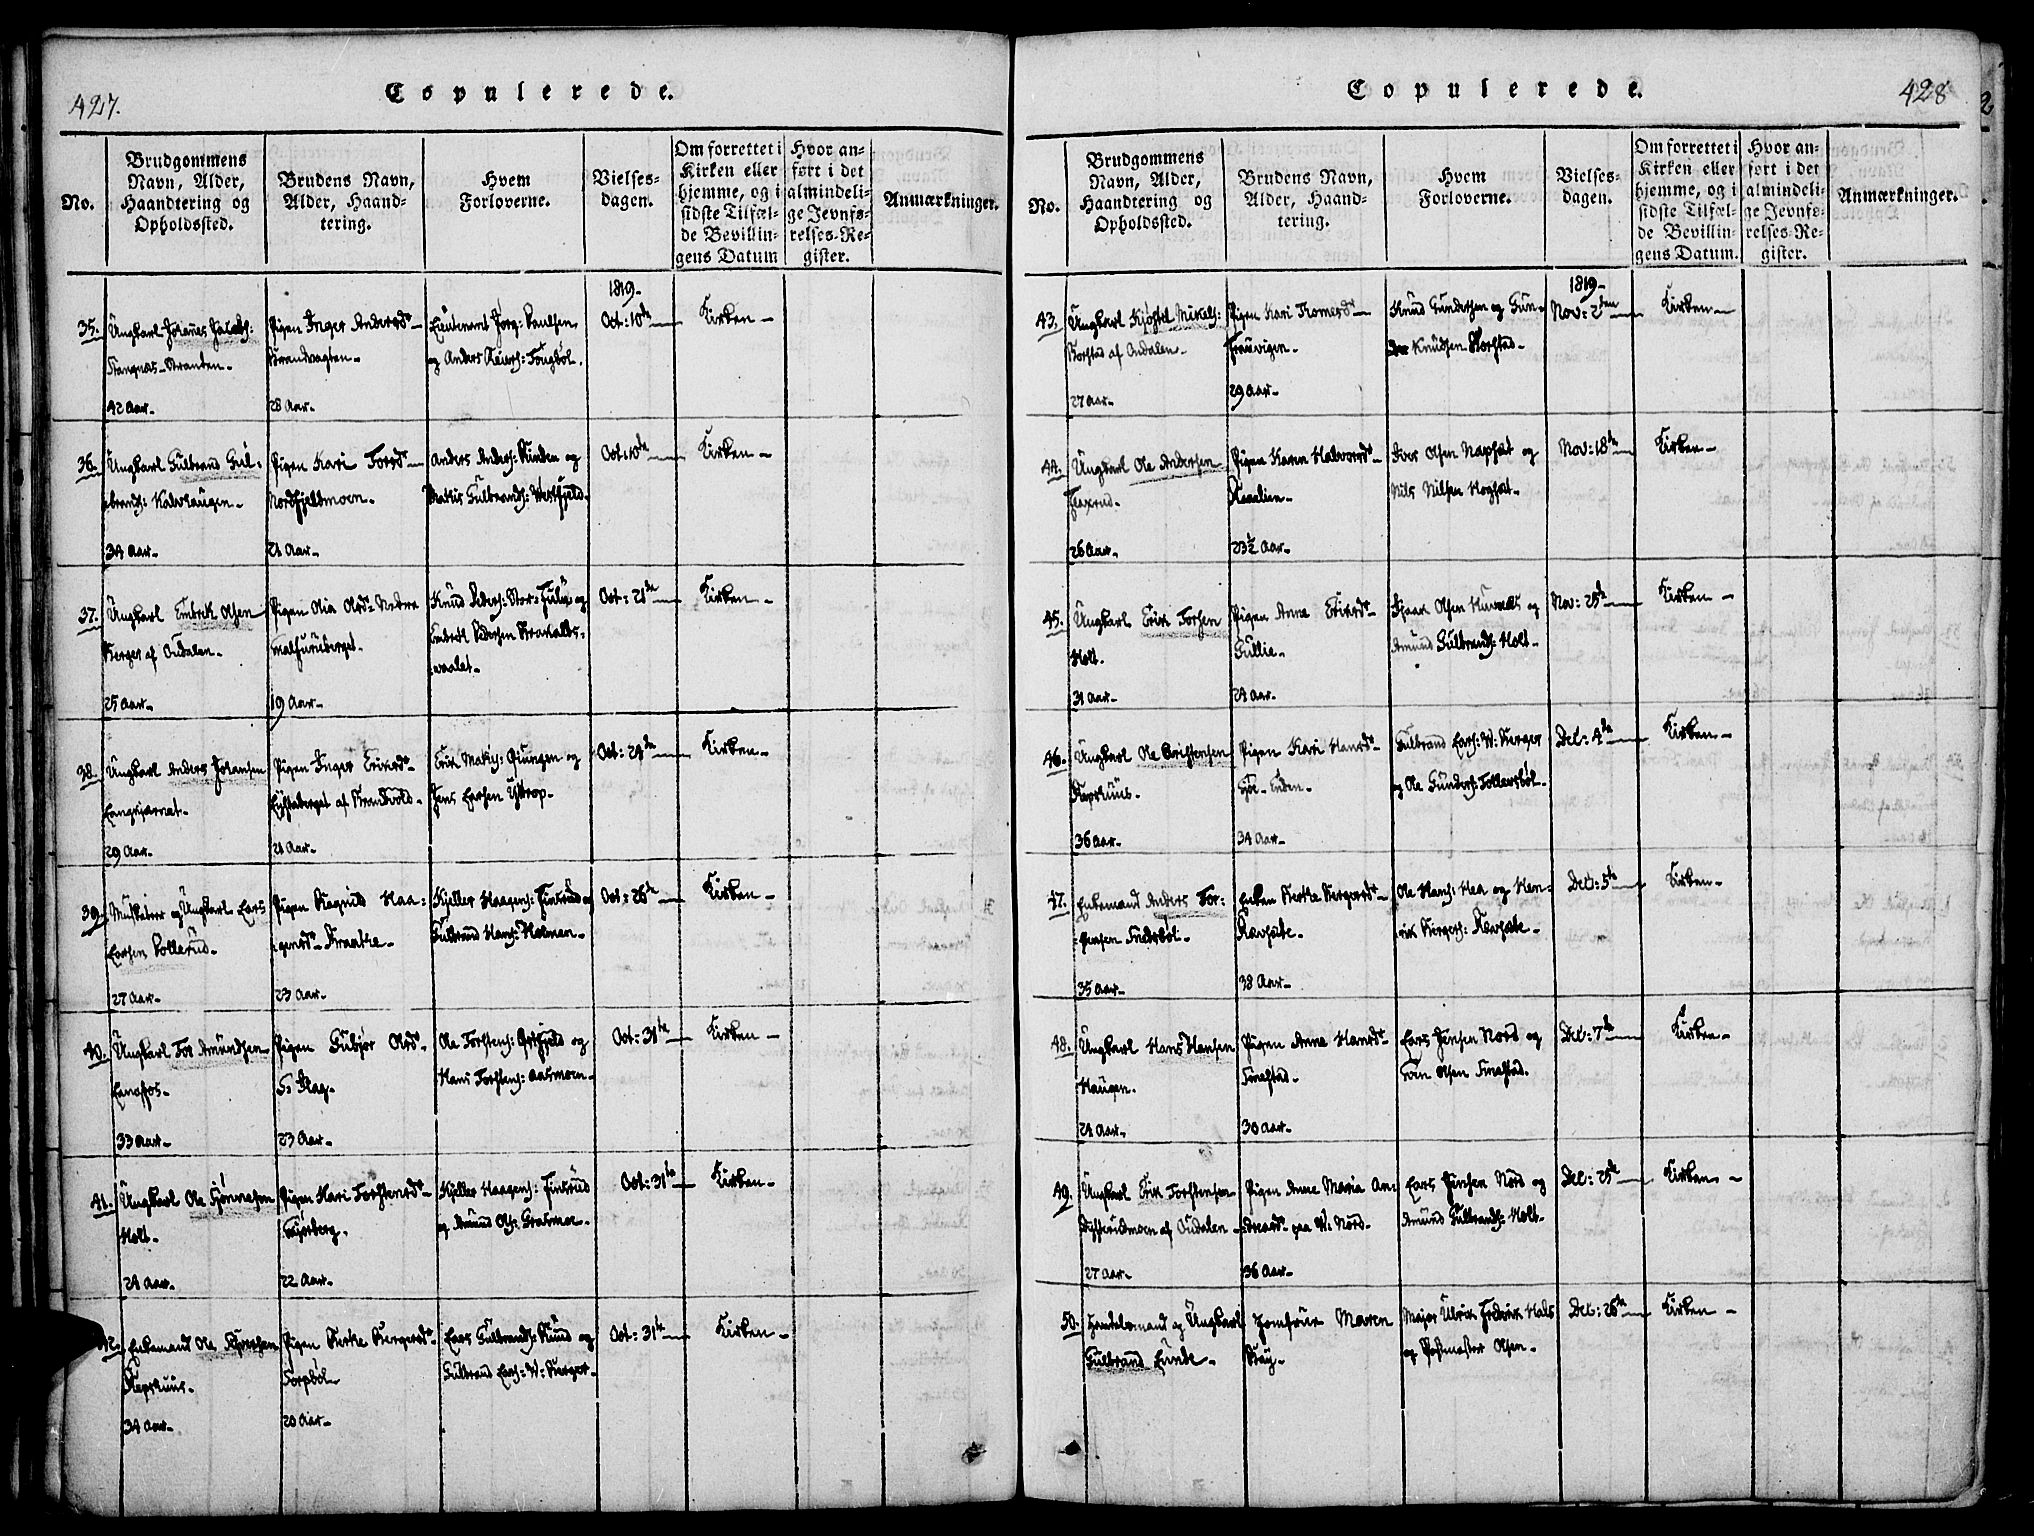 427.
Copulerede.
No.
Brudgommens Navn, Alder, Haandtering og Opholdssted.
Brudens Navn, Alder, Haandtering.
Hvem Forloverne.
Vielsesdagen.
Om forrettet i Kirken eller hjemme, og i sidste Tilfælde Bevillingens Datum
Hvor anført i det almindelige Jevnførelses-Register.
Anmærkninger.
1819.
35. Ungkarl Johanes Jacobs:
Stangnæs-Stranden.
42 Aar.
Pigen Inger Andersdr
Strandvagten.
28 Aar.
Lieutenant Jørg: Paulsen
og Anders Reiers: Tougbøl.
Oct: 10de
Kirken
36. Ungkarl Gulbrand Gul-
brands: Kalvhaugen.
34 Aar.
Pigen Kari Torsdr
Nordfjeldmoen.
21 Aar.
Anders Anders: Linden og
Mathis Gulbrands: Westfjeld.
Oct: 10de
Kirken
37. Ungkarl Embrik Olsen
Berger af Oudalen.
25 Aar.
Pigen Olia Olsdr Nedre
Malfuruberget.
19 Aar.
Knud Peders: Stor-Julie og
Embret Pedersen
Oct: 21de
Kirken
38. Ungkarl Anders Johansen
Langkjærnet.
29 Aar.
Pigen Inger Eriksdr
af Brandvold
21 Aar.
Erik Mathis: Giungen og
Jens Larsen Ystrop.
Oct: 24de
Kirken
39. Musketeer og Ungkarl Lars
Larsen Pollerud.
27 Aar.
Pigen Ragnild Haa-
gensdr Braathe.
23 Aar.
Kjeller Haagens: Finkrud og
Gulbrand Hans: Holman.
Oct: 26de
Kirken
40. Ungkarl Tor Amundsen
Lenoffos.
33 Aar.
Pigen Gubjør Olsdr
S: Flag.
23 Aar.
Ole Torstens: Ostfjeld og
Hans Torstens: Aasmoen.
Oct: 31te
Kirken
41. Ungkarl Ole Tjønnesen
Holt.
24 Aar.
Pigen Kari Torstensdr
22 Aar.
Kjeller Haagens: Finkrud
og Amund Ols: Grasmoe.
Oct: 31te
Kirken
42. Enkemand Ole Syversen
Repshuus.
34 Aar.
Pigen Berthe Bergersdr
Torpbøl
20 Aar.
Lars Gulbrands: Rund og
Gulbrand Lars: W: Berger.
Oct: 31te
Kirken
428
Copulerede.
No.
Brudgommens Navn, Alder, Haandtering og Opholdssted.
Brudens Navn, Alder, Haandtering.
Hvem Forloverne.
Vielsesdagen.
Om forrettet i Kirken eller hjemme, og i sidste Tilfælde Bevillingens Datum.
Hvor anført i det almindelige Jevnførelses-Register.
Anmærkninger.
1819.
43. Ungkarl Kjøstel Mikels:
Korstad af Oudalen.
27 Aar.
Pigen Kari Tromersdr
Trauvigen.
29 Aar.
Knud Gundersen og Gun-
der Knudsen Korstad.
Nov: 2den
Kirken
44. Ungkarl Ole Andersen
Flaxrud.
26 Aar.
Pigen Karen Halvorsdr
Kaalien.
23½ Aar.
Iver Olsen Napset og
Nils Nilsen Hogset.
Nov: 18de
Kirken
45. Ungkarl Erik Torsen
Holt.
31 Aar.
Pigen Anne Eriksdr
Gullie.
24 Aar.
Isaak Olsen Huvnæs og
Amund Gulbrands: Holt.
Nov: 25de
Kirken
46. Ungkarl Ole Cristensen
Repshuus.
36 Aar.
Pigen Kari Hansdr
34 Aar.
Gulbrand Lars: W: Berger
og Ole Gunders: Tollevsbøl.
Dec: 4de
Kirken
47. Enkemand Anders Tor-
gersen Fredsbøl.
35 Aar.
Enken Berthe Bergersdr
Rævsæte.
38 Aar.
Ole Hans: Hea og Hen-
rik Bergers: Rævsæte.
Dec: 5te
Kirken
48. Ungkarl Hans Hansen
Haugen.
24 Aar.
Pigen Anne Hansdr
Finastad.
30 Aar.
Lars Jensen Nord og
Sven Olsen Finastad.
Dec: 7de
Kirken
49. Ungkarl Erik Torstensen
af Oudalen
27 Aar.
Pigen Anne Maria An-
dreasdr paa W: Nord.
36 Aar.
Lars Jensen Nord og
Amund Gulbrands: Holt.
Dec: 25de
Kirken
50. Handelsmand og Ungkarl
Gulbrand Lunde.
Jomfrue Maren
Bay.
Major Ulrik Fredrik Hals
og Postmester Olsen.
Dec: 26de
Kirken